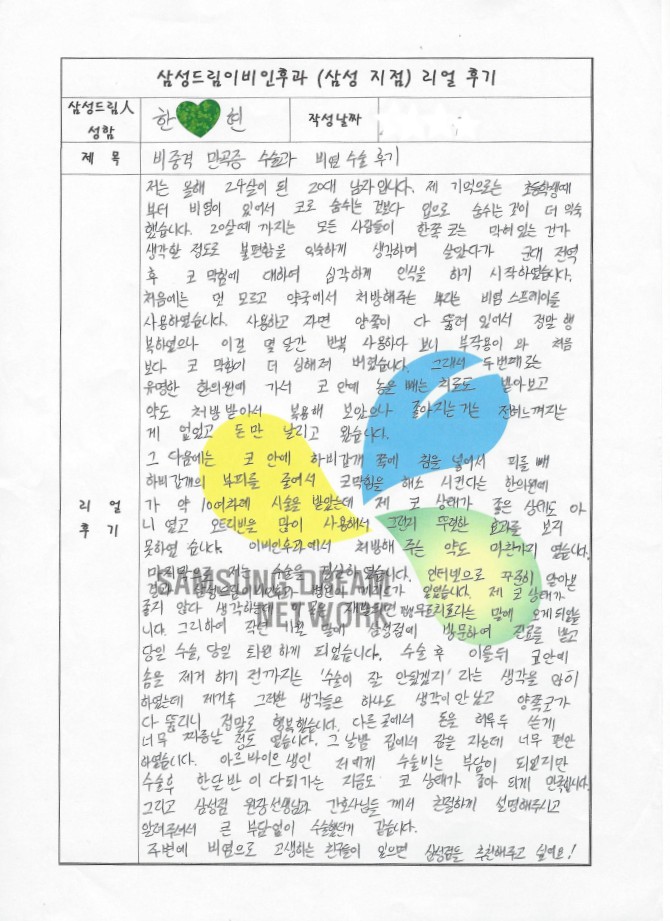 삼성드림이비인후과 (삼성 지점) 리얼 후기
삼성드림人 성함
한 현
작성날짜
제 목
비중격 만곡증 수술과 비염 수술 후기
리 얼
후 기
저는 올해 24살이 된 20대 남자입니다. 제 기억으로는 초등학생때
부터 비염이 있어서 코로 숨쉬는 것보다 입으로 숨쉬는 것이 더 익숙
했습니다. 20살때 까지는 모든 사람들이 한쪽 코는 막혀있는 건가
생각한 정도로 불편함을 익숙하게 생각하며 살았다가 군대 전역
후 코 막힘에 대하여 심각하게 인식을 하기 시작하였습니다.
처음에는 멋 모르고 약국에서 처방해주는 비염 스프레이를
사용하였습니다. 사용하고 자면 양쪽이 다 뚫려 있어서 정말 행
복하였으나 이걸 몇 달간 반복 사용하다 보니 부작용이 와 처음
보다 코 막힘이 더 심해져 버렸습니다. 그래서 두번째로는
유명한 한의원에 가서 코 안에 농을 빼는 치료도 받아보고
약도 처방 받아서 복용해 보았으나 좋아지는거는 전혀느껴지는
게 없었고 돈만 날리고 왔습니다.
그 다음에는 코 안에 하비갑개 쪽에 침을 넣어서 피를 빼
하비갑개의 부피를 줄여서 코막힘을 해소 시킨다는 한의원에
가 약 10여차례 시술을 받았는데 제 코 상태가 좋은 상태도 아
니 였고 오트리빈을 많이 사용해서 그런지 뚜렷한 효과를 보지
못하였 습니다. 이비인후과에서 처방해 주는 약도 마찬가지 였습니다.
마지막으로 저는 수술을 결심하였습니다. 인터넷으로 꾸준히 알아본
결과 제 코 상태가
좋지 않다 생각하는데 말에 오게 되었습
니다. 그리하여 작년 말에 삼성점에 방문하여 진료를 받고
당일 수술, 당일 퇴원 하게 되었습니다. 수술 후 이틀뒤 코안에
솜을 제거 하기 전까지는 '수술이 잘 안됐겠지' 라는 생각을 많이
하였는데 제거후 그러한 생각들은 하나도 생각이 안 났고 양쪽코가
다 뚫리니 정말로 행복했습니다. 다른 곳에서 돈을 허투루 쓴게
너무 짜증날 정도 였습니다. 그 날밤 집에서 잠을 자는데 너무 편안
하였습니다. 아르바이트 생인 저에게 수술비는 부담이 되었지만
수술후 한달반 이 다되가는 지금도 코 상태가 좋아 되게 만족합니다.
그리고 삼성점 원장선생님과 간호사님들 께서 친절하게 설명해주시고
알려주셔서 큰 부담없이 수술했던게 같습니다.
주변에 비염으로 고생하는 친구들이 있으면 삼성점을 추천해주고 싶어요!
SAMSUNG DREAM
NETWORK